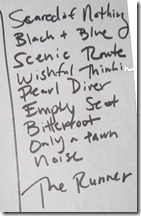 Scared of Nothing
Black + Blue
Scenic Route
Wishful Thinkin
Pearl Diver
Empty Seat
Bitterroot
Only a Pawn
Noise
The Runner